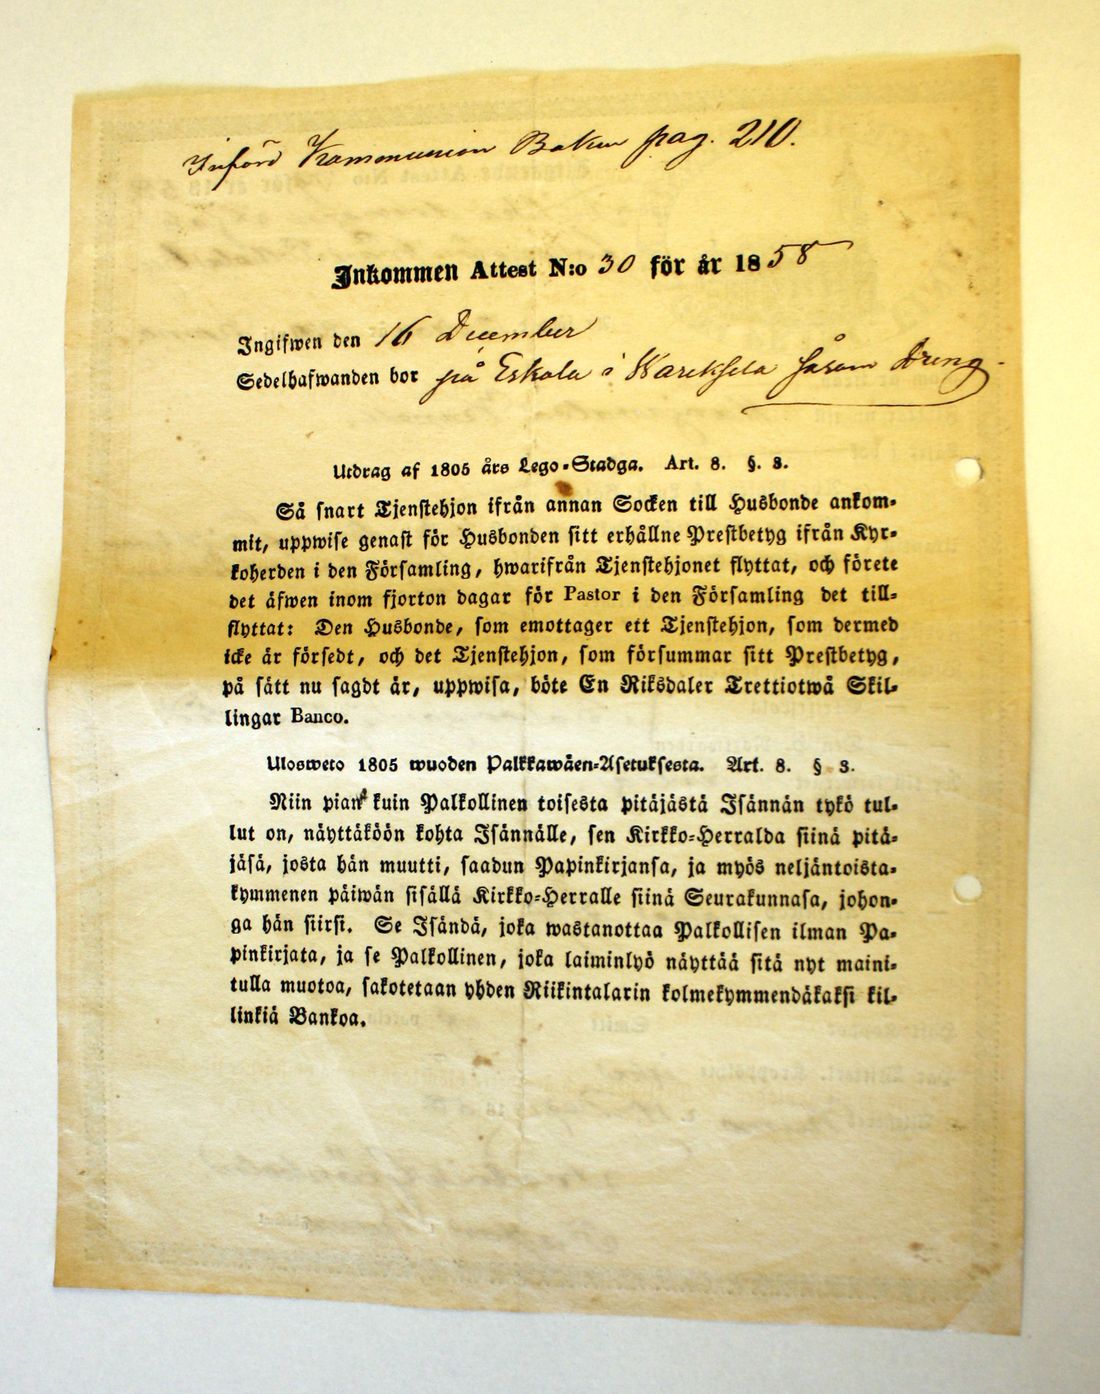 Införd Kommunion Boken pag. 210.
Inkommen Attest N:o 30 för år 1858
Ingifwen den 16 December
Sedelhafwanden bor på Eskola i Wareksela såsom dreng
Utdrag af 1805 års Lego-Stadga. Art. 8. §. 3.
Så snart Tjenstehjon ifrån annan Socken till Husbonde ankom-
mit, uppwise genast för Husbonden sitt erhållne Prestbetyg ifrån Kyr-
koherden i den Församling, hwarifrån Tjenstehjonet flyttat, och förete
det äfwen inom fjorton dagar för Pastor i den Församling det till-
flyttat: Den Husbonde, som emottager ett Tjenstehjon, som dermed
icke är försedt, och det Tjenstehjon, som försummar sitt Prestbetyg,
på sätt nu sagdt är, uppwisa, böte En Riksdaler Trettiotwå Skil-
lingar Banco.
Ulosweto 1805 wuoden Palkkawäen-Asetuksesta. Art. 8. § 3.
Niin pian kuin Palkollinen toisesta pitäjästä Isännän tykö tul-
lut on, näyttäköön kohta Isännälle, sen Kirkko-Herralda siinä pitä-
jäsä, josta hän muutti, saadun Papinkirjansa, ja myös neljäntoista-
kymmenen päiwän sisällä Kirkko-Herralle siinä Seurakunnasa, johon-
ga hän siirsi. Se Isändä, joka wastanottaa Palkollisen ilman Pa-
pinkirjata, ja se Palkollinen, joka laiminlyö näyttää sitä nyt maini-
tulla muotoa, sakotetaan yhden Riikintalarin kolmekymmendäkaksi kil-
linkiä Bankoa.